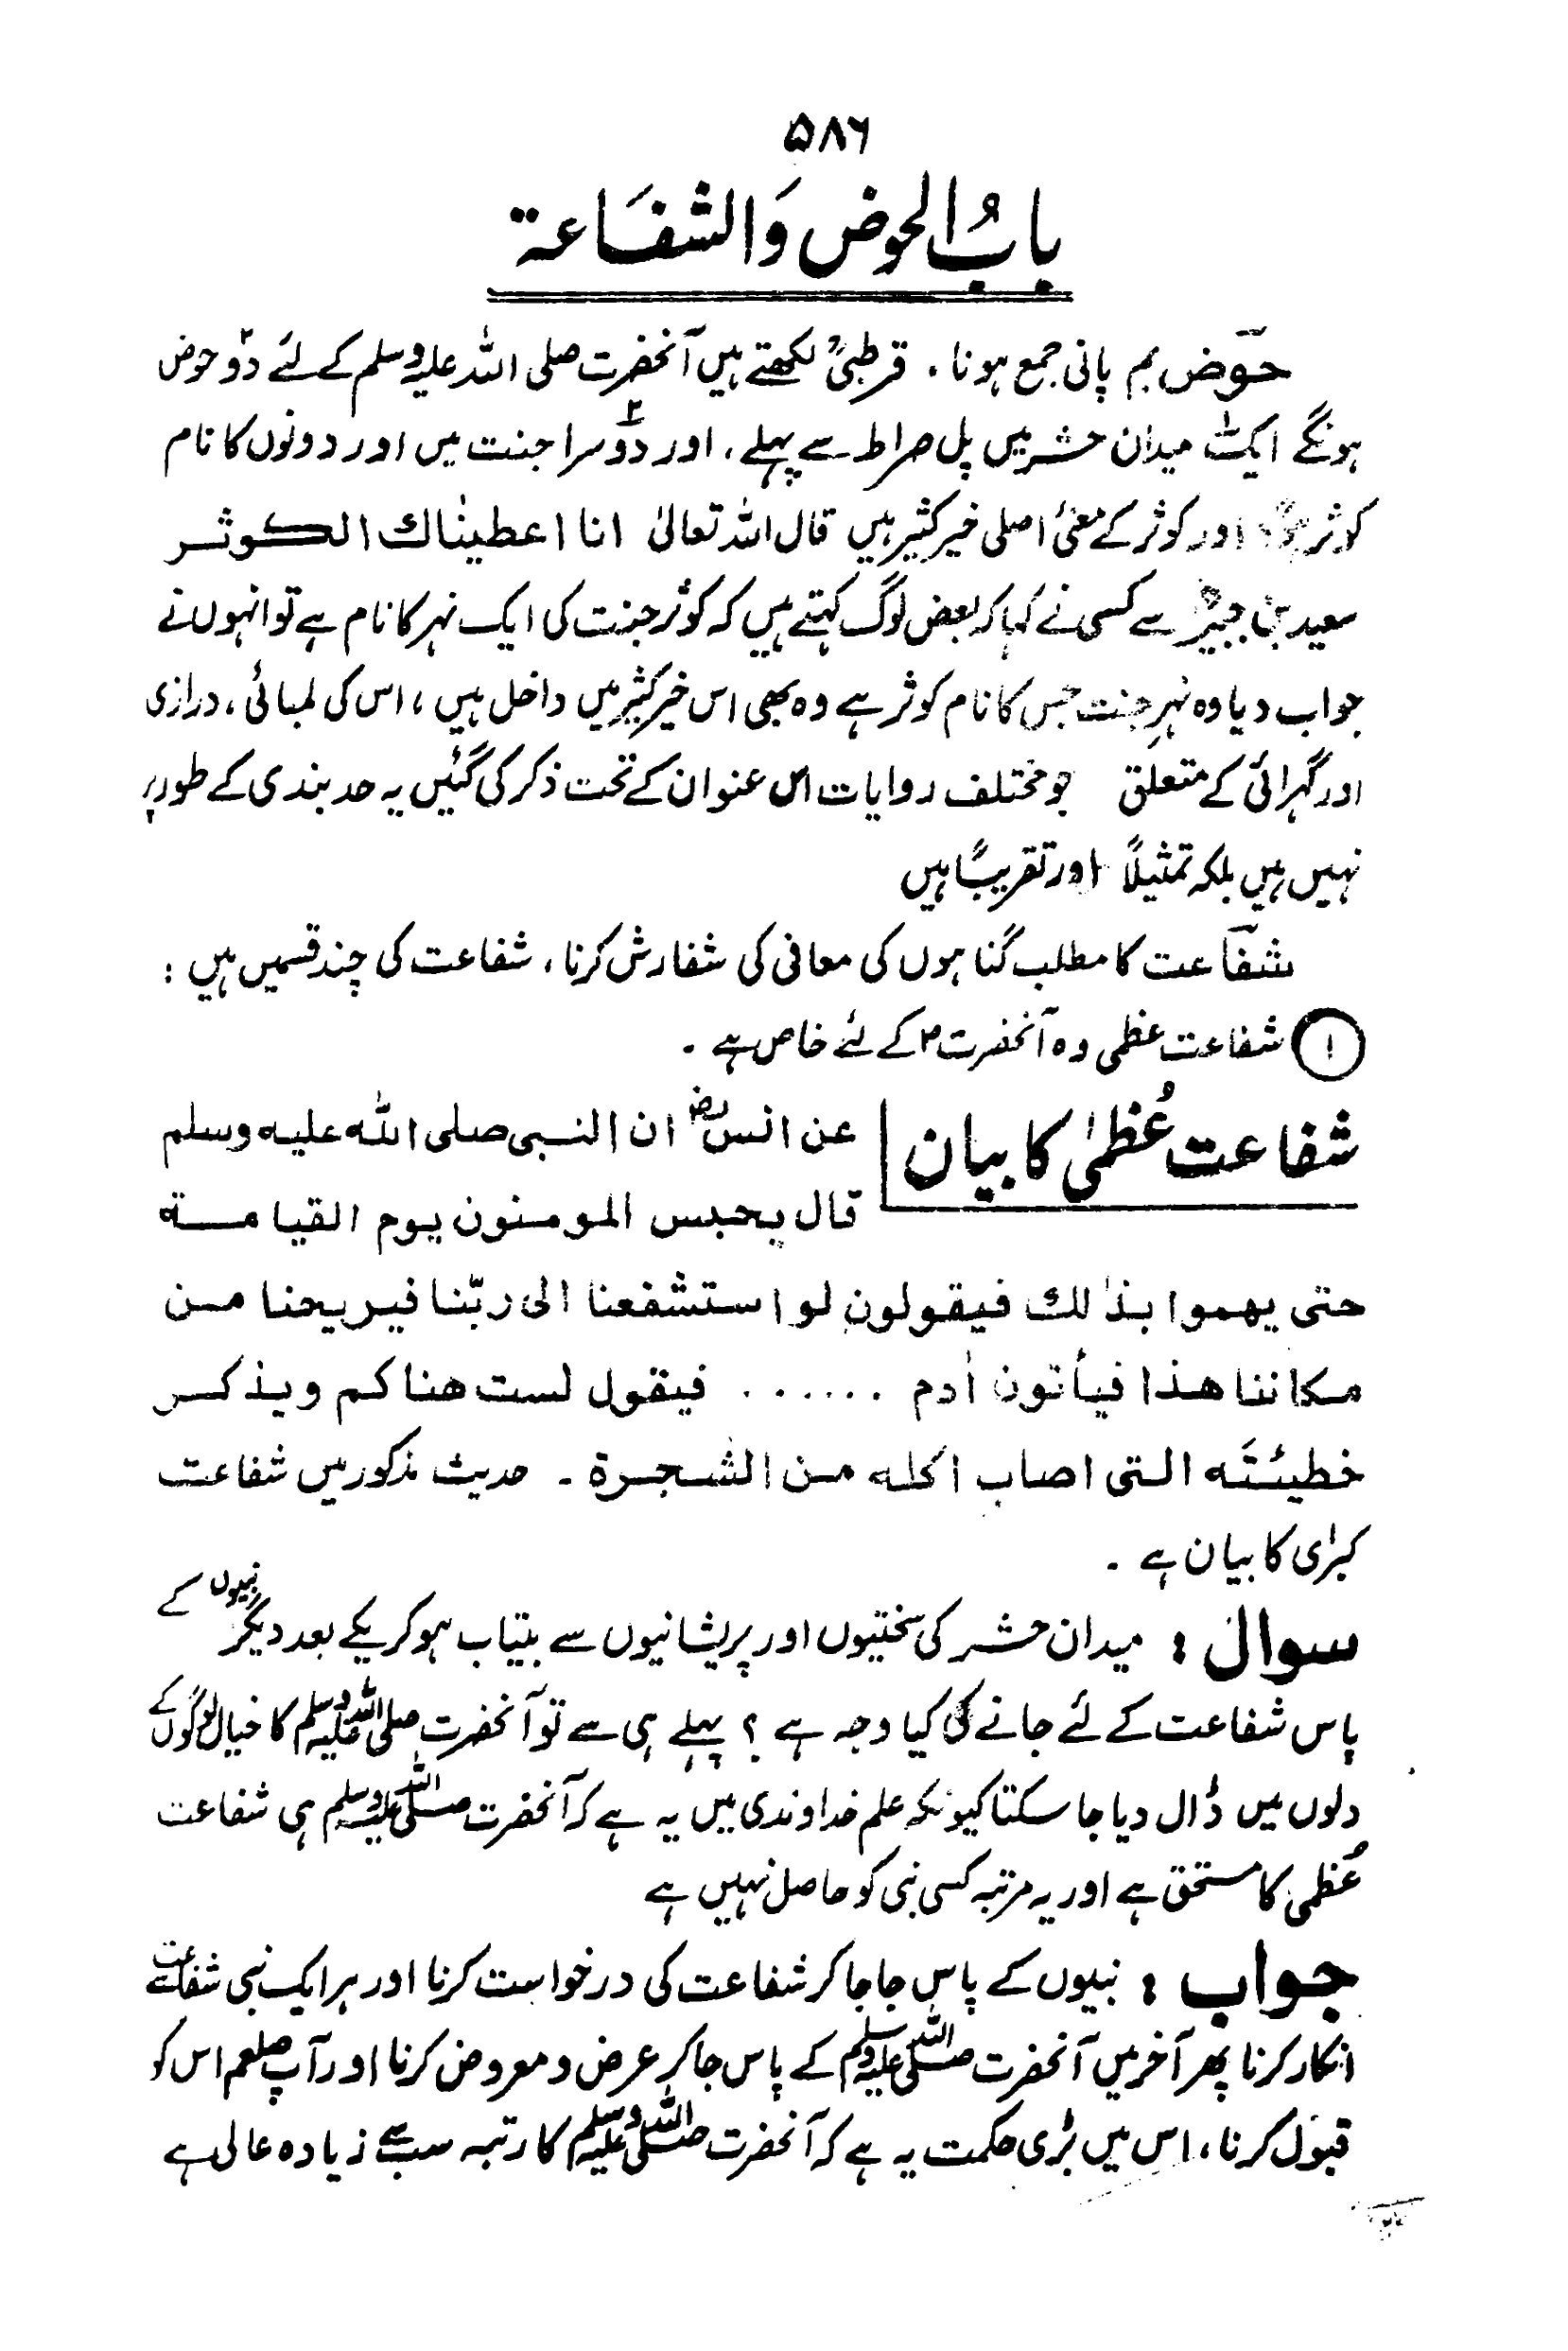 ۵۸۶
بابُ الحوض وَالشفَاعة
حوٓض بم پانی جمع ہونا ، قرطبیؒ لکھتے ہیں آنحضرت صلی اللہ علیہ وسلم کے لئے دو۲ حوض
ہونگے ایک۱ میدان حشر میں پل صراط سے پہلے ، اور دو۲سرا جنت میں اور دونوں کا نام
کوثر اور کوثر کے معنیٔ اصلی خیر کثیر ہیں قال اللہ تعالیٰ انا اعطینٰاك الکوثر
سعید بن جبیرؒ سے کسی نے کہا کہ بعض لوگ کہتے ہیں کہ کوثر جنت کی ایک نہر کا نام ہے تو انہوں نے
جواب دیا وہ نہرِ جنت جس کا نام کوثر ہے وہ بھی اس خیر کثیر میں داخل ہیں ، اس کی لمبائی ، درازی
اور گہرائی کے متعلق جو مختلف روایات اس عنوان کے تحت ذکر کی گئیں یہ حد بندی کے طور پر
نہیں ہیں بلکہ تمثیلاً اور تقریبًا ہیں
شفآعت کا مطلب گناہوں کی معافی کی شفارش کرنا ، شفاعت کی چند قسمیں ہیں :
① شفاعت عظمی وہ آنحضرت ؐ کے لئے خاص ہے ۔
شفاعت عُظمیٰ کا بیان
عن انسؓ ان النبی صلی اللّٰہ علیہ وسلم
قال یحبس المومنون یوم القیامة
حتی یھموا بذٰلك فیقولون لو استشفعنا الی ربّنا فیریحنا من
مکاننا ھذا فیأتون اٰدم ...... فیقول لست ھناکم ویذکر
خطیئتَه التی اصاب اکله من الشجرة ۔ حدیث مذکور میں شفاعت
کبرٰی کا بیان ہے ۔
سوال : میدان حشر کی سختیوں اور پریشانیوں سے بیتاب ہو کر یکے بعد دیگر نبیوں کے
پاس شفاعت کے لئے جانے کی کیا وجہ ہے ؟ پہلے ہی سے تو آنحضرت صلی اللہ علیہ وسلم کا خیال لوگوں کے
دلوں میں ڈال دیا جا سکتا کیونکہ علم خداوندی میں یہ ہے کہ آنحضرت صلی اللہ علیہ وسلم ہی شفاعت
عُظمی کا مستحق ہے اور یہ مرتبہ کسی نبی کو حاصل نہیں ہے
جواب : نبیوں کے پاس جا جا کر شفاعت کی درخواست کرنا اور ہر ایک نبی شفاعت سے
انکار کرنا پھر آخر میں آنحضرت صلی اللہ علیہ وسلم کے پاس جا کر عرض و معروض کرنا اور آپ صلعم اس کو
قبول کرنا ، اس میں بڑی حکمت یہ ہے کہ آنحضرت صلی اللہ علیہ وسلم کا رتبہ سب سے زیادہ عالی ہے